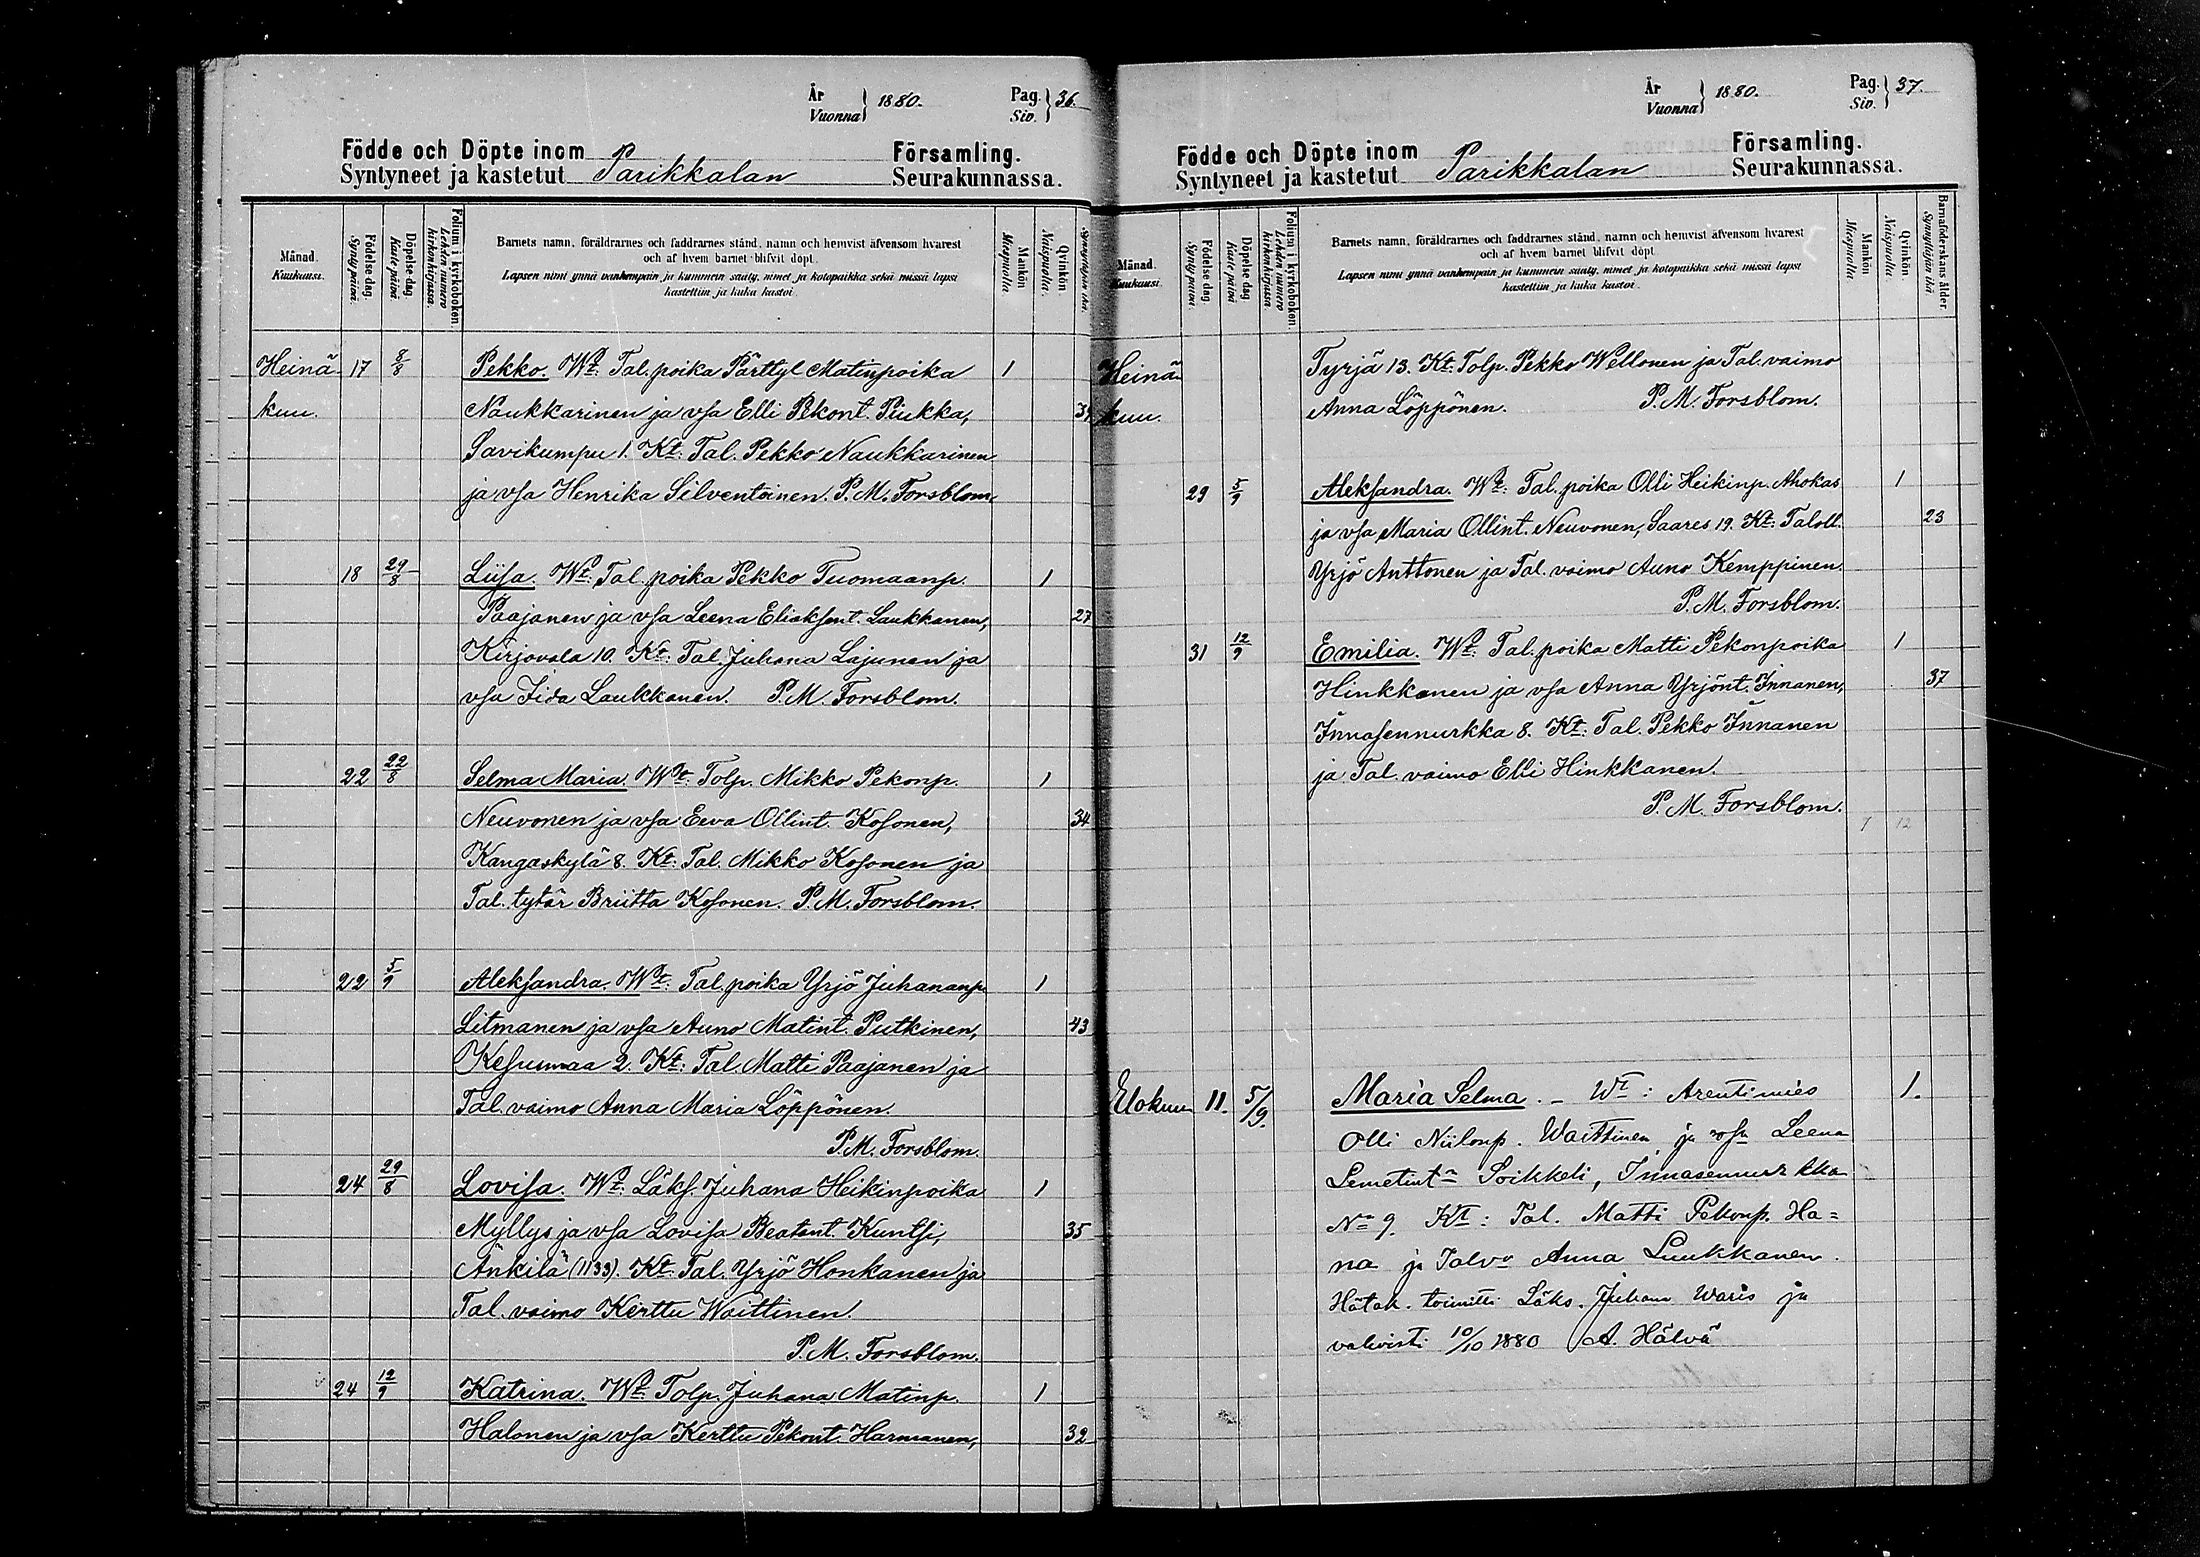 År Vuonna } 1880. Pag. Siv. } 36.
Födde och Döpte inom Församling.
Syntyneet ja kastetut Parikkalan Seurakunnassa.
Månad. Kuukausi.
Födelse dag. Synty päivä.
Döpelse dag Kaste päivä
Folium i kyrkoboken. Lehden numero kirkonkirjassa.
Barnets namn, föräldrarnes och faddrarnes stånd, namn och hemvist äfvensom hvarest
och af hvem barnet blifvit döpt.
Lapsen nimi ynnä vanhempain ja kummein sääty, nimet ja kotopaikka sekä missä lapsi
kastettiin ja kuka kastoi.
Mankön Miespuolia.
Qvinkön. Naispuolia.
Heinä 17 8/8 Pekko. Wt: Tal. poika Pärttyl Matinpoika 1
kuu. Naukkarinen ja vsa Elli Pekont. Piukka,
Savikumpu 1. Kt: Tal. Pekko Naukkarinen
ja vsa Henrika Silventoinen. P. M. Forsblom.
18 29/8 Liisa. Wt: Tal. poika Pekko Tuomaanp. 1
Paajanen ja vsa Leena Eliaksent. Laukkanen, 27
Kirjavala 10. Kt: Tal. Juhana Lajunen ja
vsa Iida Laukkanen. P. M. Forsblom.
22 22/8 Selma Maria. Wt: Tolp. Mikko Pekonp. 1
Neuvonen ja vsa Eeva Ollint. Kosonen, 34
Kangaskylä 8. Kt: Tal. Mikko Kosonen ja
Tal. tytär Briitta Kosonen. P. M. Forsblom.
22 5/9 Aleksandra. Wt: Tal. poika Yrjö Juhananp. 1
Litmanen ja vsa Auno Matint. Putkinen, 43
Kesusmaa 2. Kt: Tal. Matti Paajanen ja
Tal. vaimo Anna Maria Löppönen.
P. M. Forsblom.
24 29/8 Lovisa. Wt: Läks. Juhana Heikinpoika 1
Myllys ja vsa Lovisa Beatant. Kuntsi, 35
Änkilä (1133). Kt: Tal. Yrjö Honkanen ja
Tal. vaimo Kerttu Waittinen.
P. M. Forsblom.
24 12/9 Katrina. Wt: Tolp. Juhana Matinp. 1
Halonen ja vsa Kerttu Pekont. Harmanen, 32
År Vuonna } 1880. Pag. Siv. } 37.
Födde och Döpte inom Församling.
Syntyneet ja kastetut Parikkalan Seurakunnassa.
Månad. Kuukausi.
Födelse dag Synty päivä.
Döpelse dag Kaste päivä
Folium i kyrkoboken. Lehden numero kirkonkirjassa.
Barnets namn, föräldrarnes och faddrarnes stånd, namn och hemvist äfvensom hvarest
och af hvem barnet blifvit döpt.
Lapsen nimi ynnä vanhempain ja kummein sääty, nimet ja kotopaikka sekä missä lapsi
kastettiin ja kuka kastoi.
Mankön Miespuolia.
Qvinkön. Naispuolia.
Barnaföderskans ålder. Synnyttäjän ikä
Heinä Tyrjä 13. Kt: Tolp. Pekko Wellonen ja Tal. vaimo
kuu. Anna Löppönen. P. M. Forsblom.
29 5/9 Aleksandra. Wt: Tal. poika Olli Heikinp. Ahokas 1
ja vsa Maria Ollint. Neuvonen, Saares 19. Kt: Taloll. 23
Yrjö Anttonen ja Tal. vaimo Auno Kemppinen.
P. M. Forsblom.
31 12/9 Emilia. Wt: Tal. poika Matti Pekonpoika 1
Hinkkanen ja vsa Anna Yrjönt. Innanen, 37
Innasennurkka 8. Kt: Tal. Pekko Innanen
ja Tal. vaimo Elli Hinkkanen.
P. M. Forsblom.
7 12
Elokuu 11. 5/9. Maria Selma. - Wt: Arentimies 1.
Olli Niilonp. Waittinen ja vsa Leena
Semetint Soikkeli, Innasennurkka
No 9. Kt: Tal. Matti Pekonp. Ha=
na ja Talvo Anna Luukkanen.
Hätäk. toimitti Läks. Juhana Waris ja
vahvisti 10/10 1880 A. Hälvä